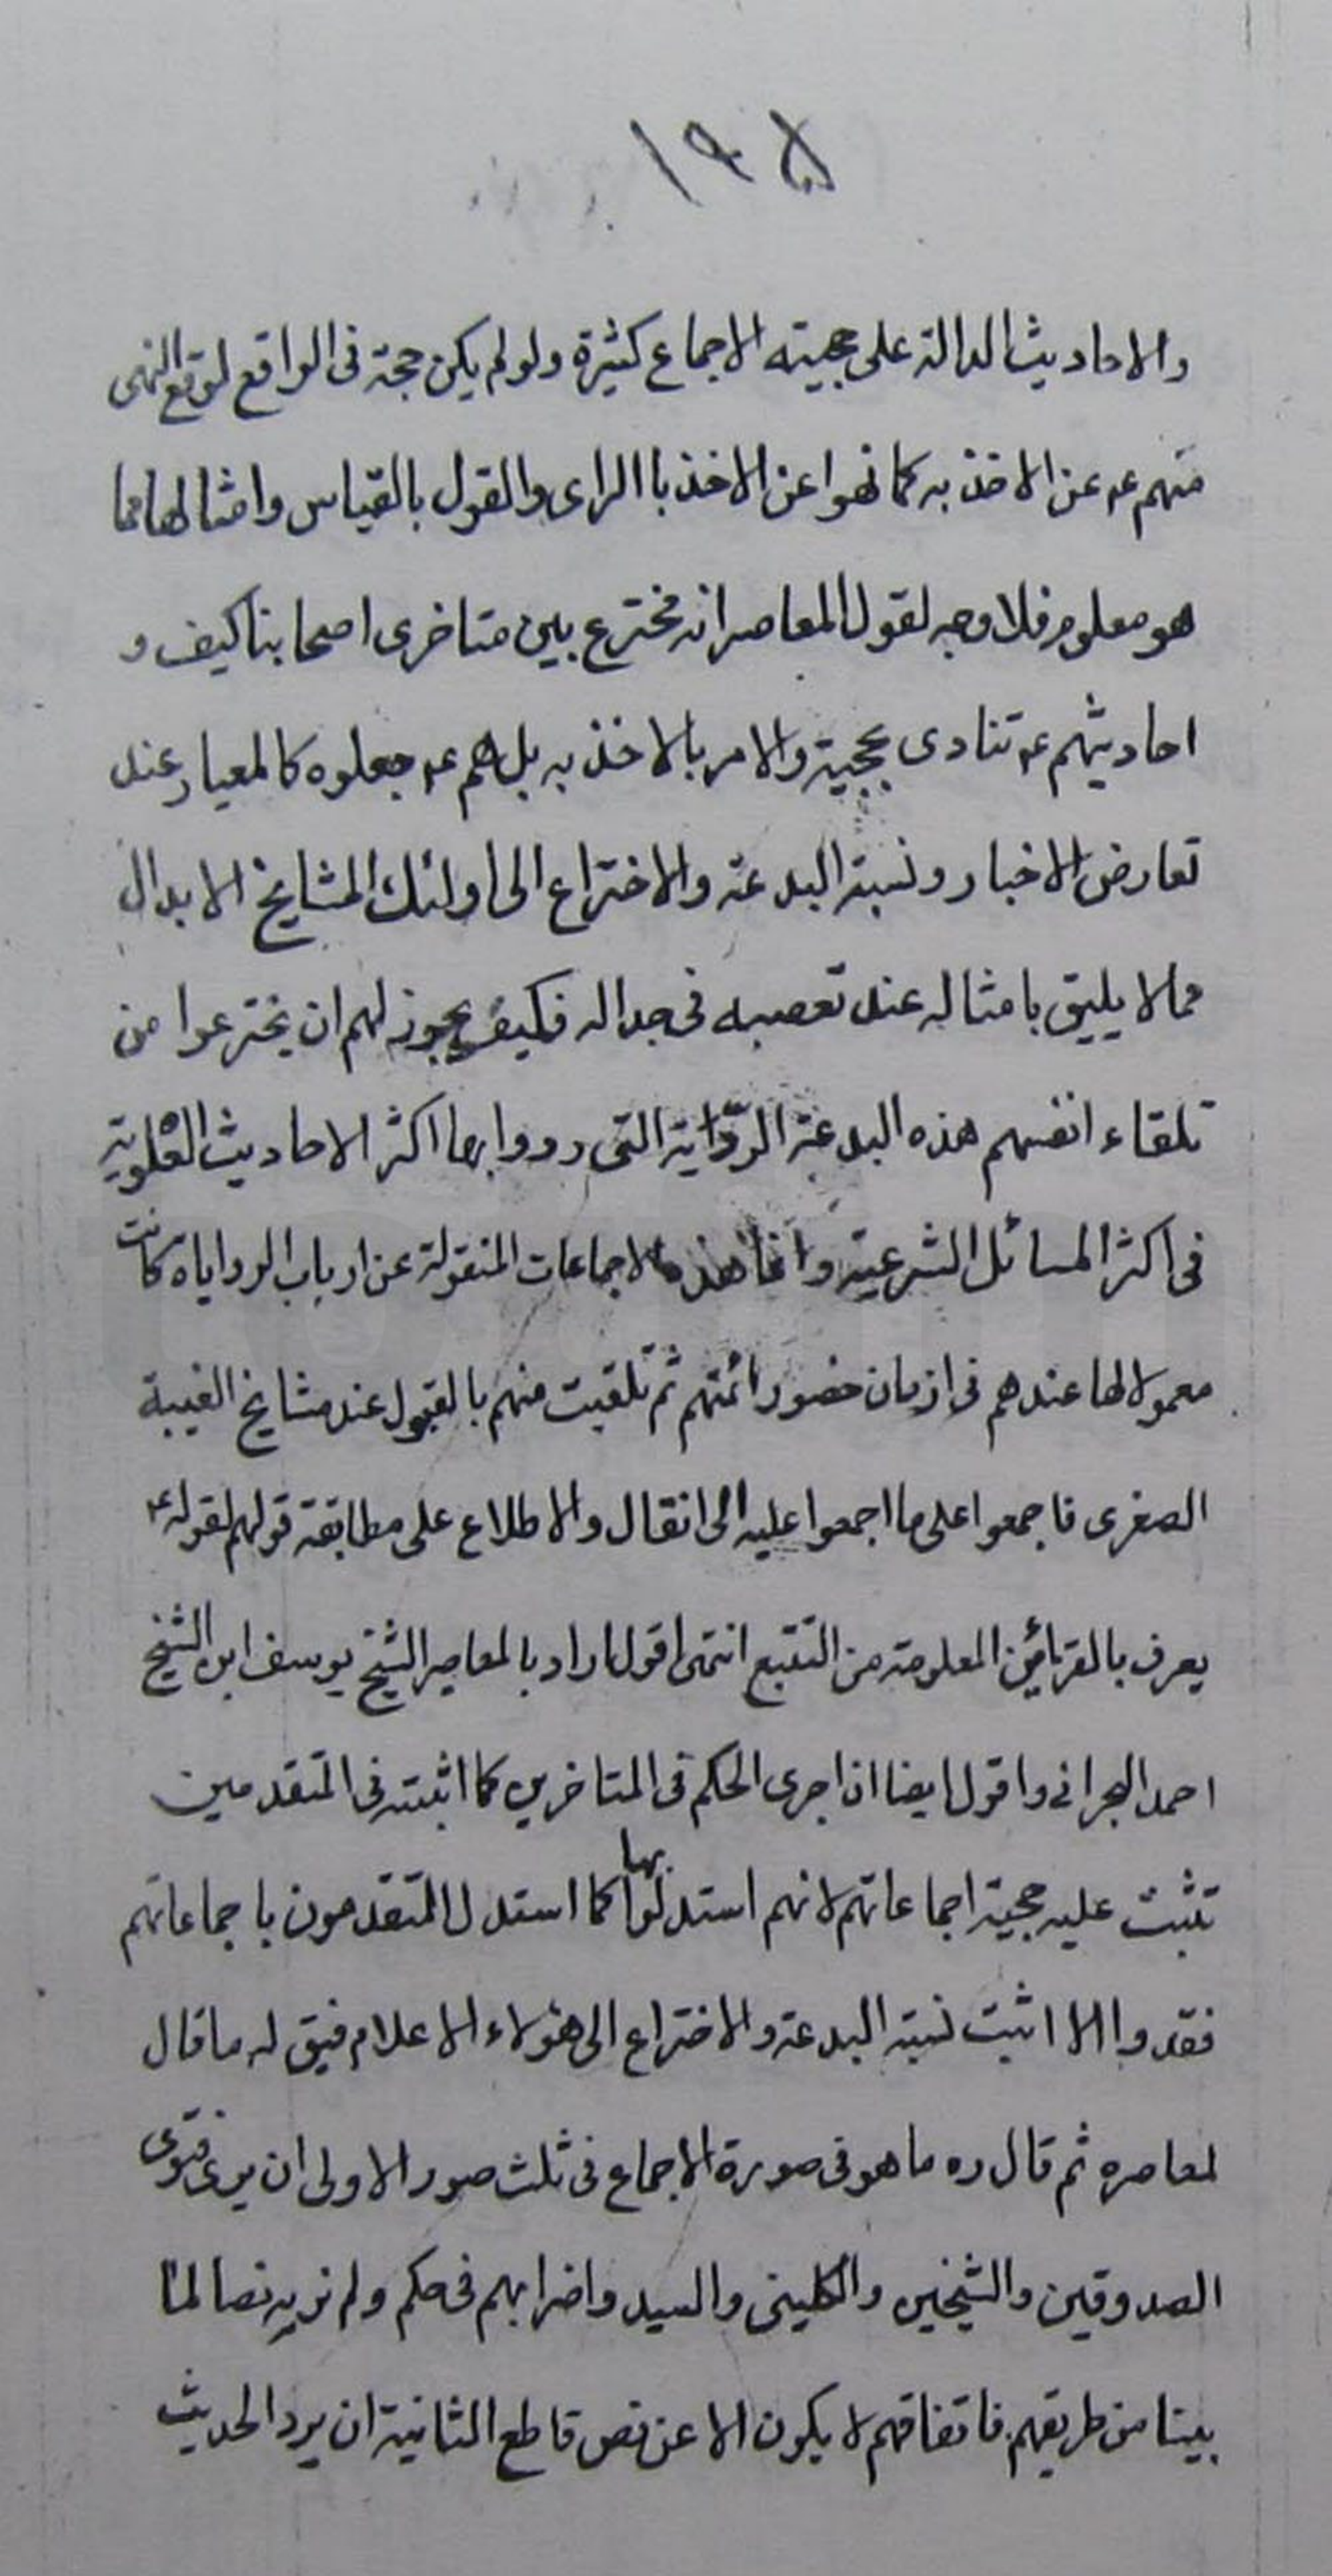 ١٩٥
والاحاديث الدالة على حجيته الاجماع كثيرة ولو لم يكن حجة فى الواقع لوقع النهى
منهم عه عن الاخذ به كما نهوا عن الاخذ باالراى والقول بالقياس وامثالها مما
هو معلوم فلا وجه لقول المعاصر انه مخترع بين متاخرى اصحابنا كيف و
احاديثهم عه تنادى بحجيته والامر بالاخذ به بل هم عه جعلوه كالمعيار عند
تعارض الاخبار ونسبة البدعة والاختراع الى اولئك المشايخ الابدال
مما لا يليق بامثاله عند تعصبه فى جداله فكيف يجوز لهم ان يخترعوا من
تلقاء انفسهم هذه البدعة التى ردوا بها اكثر الاحاديث
فى اكثر المسائل الشرعية وانما هذه الاجماعات المنقولة عن ارباب الرداياه كانت
معمولا لها عندهم فى ازمان حضور ائمتهم ثم تلقيت منهم بالقبول عند مشايخ الغيبة
الصغرى فاجمعوا على ما اجمعوا عليه الى انقال والاطلاع على مطابقة قولهم لقوله عه
يعرف بالقرائن المعلومة من التتبع انتهى اقول اراد بالمعاصر الشيخ يوسف ابن الشيخ
احمد البحرانى واقول ايضا ان اجرى الحكم فى المتاخرين كما اثبته فى المتقدمين
تثبت عليه حجية اجماعاتهم لانهم استدلوا بها كما استدل المتقدمون باجماعاتهم
فقدوا الا اثبت نسبة البدعة والاختراع الى هؤلاء الاعلام فيق له ما قال
لمعاصره ثم قال ره ما هو فى صورة الاجماع فى ثلث صور الاولى ان يرى فتوى
الصدوقين والشيخين والكلينى والسيد واضرابهم فى حكم ولم نر به نصا لنا
بينا من طريقهم فاتفاقهم لا يكون الا عن نص قاطع الثانية ان يرد الحديث